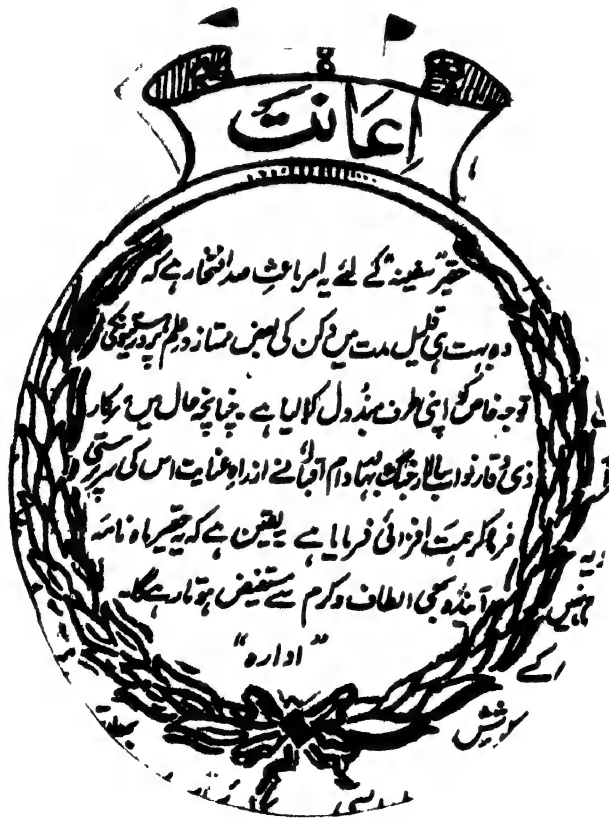 اِعَانَتْ
حقیر "سفینہ" کے لئے یہ امر باعثِ صد افتخار ہے کہ
وہ بہت ہی قلیل مدت میں دکن کی بعض ممتاز و علم پرور
توجہ خاص کو اپنی طرف مبذول کرا لیا ہے ۔ چنانچہ حال میں سرکار
ذی وقار نواب سالار جنگ بہادر دام اقبالہٗ نے از راہِ عنایت اس کی سرپرستی
فرما کر ہمت افزائی فرمایا ہے یقین ہے کہ یہ حقیر ماہ نامہ
آیندہ بھی الطاف و کرم سے مستفیض ہوتا رہے گا۔
"ادارہ"
اکے